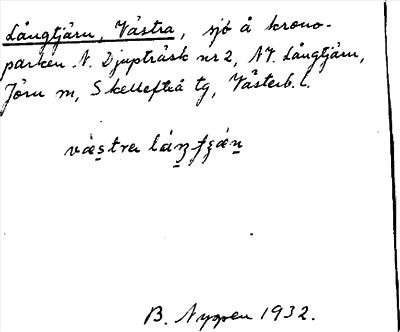 Långtjärn, Västra, sjö å krono-
parken N. Djupträsk nr 2, NV. Långtjärn,
Jörn sn, Skellefteå tg, Västerb. l.
västra
B. Nygren 1932.